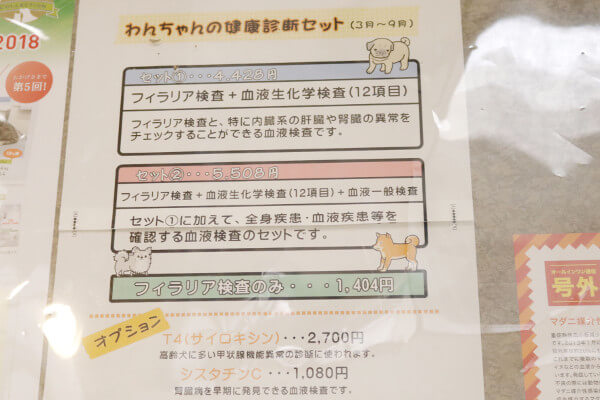 2018
第5回!
わんちゃんの健康診断セット(3月～9月)
セット①・・・4,428円
フィラリア検査＋血液生化学検査(12項目)
フィラリア検査と、特に内臓系の肝臓や腎臓の異常を
チェックすることができる血液検査です。
セット②・・・5,508円
フィラリア検査＋血液生化学検査(12項目)＋血液一般検査
セット①に加えて、全身疾患・血液疾患等を
確認する血液検査のセットです。
フィラリア検査のみ・・・1,404円
オプション
T4(サイロキシン)・・・2,700円
高齢犬に多い甲状腺機能異常の診断に使われます。
シスタチンC・・・1,080円
腎臓病を早期に発見できる血液検査です。
オールインワン通信
号外
マダニ媒介性